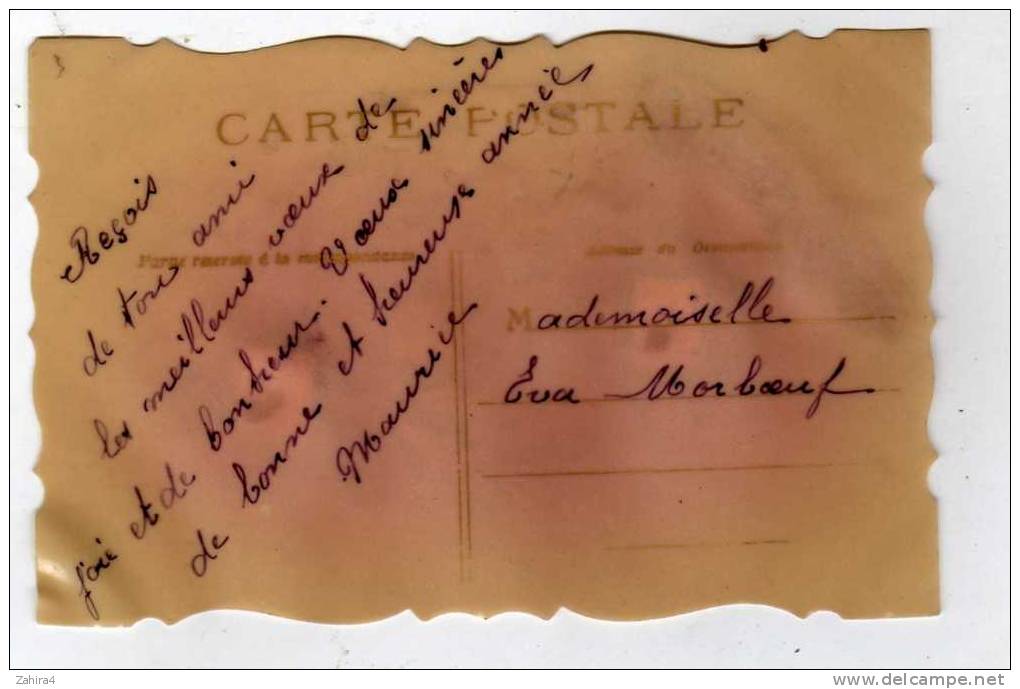 CARTE POSTALE
Reçois
de ton ami
les meilleurs vœux de
joie et de bonheur. Vœux sincères
de bonne et heureuse année
Maurice
Partie réservée à la correspondance
Adresse du
Mademoiselle
Éva Morbœuf
Zahira4
www.delcampe.net